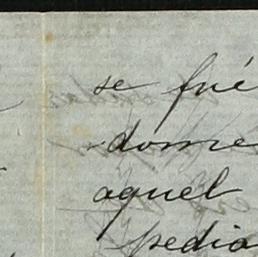 se fué
dome
aquel
pedia